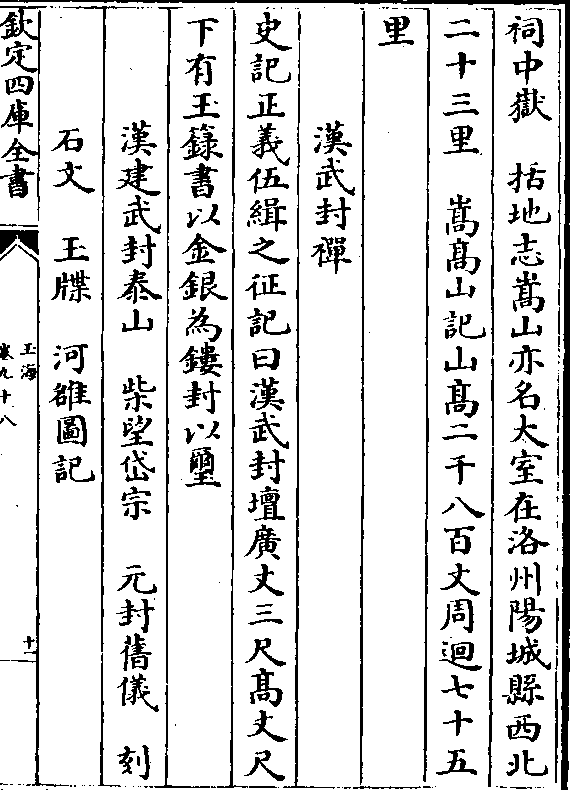 祠中嶽　括地志嵩山亦名大室在洛州陽城縣西北
二十三里　嵩髙山記山髙二千八百丈周迴七十五
里
漢武封禪
史記正義伍緝之征記曰漢武封壇廣丈三尺髙丈尺
下有玉籙書以金銀為鏤封以璽
漢建武封泰山　柴望岱宗　元封舊儀　刻
石文　玉牒　河雒圖記
欽定四庫全書
玉海
卷九十八
十